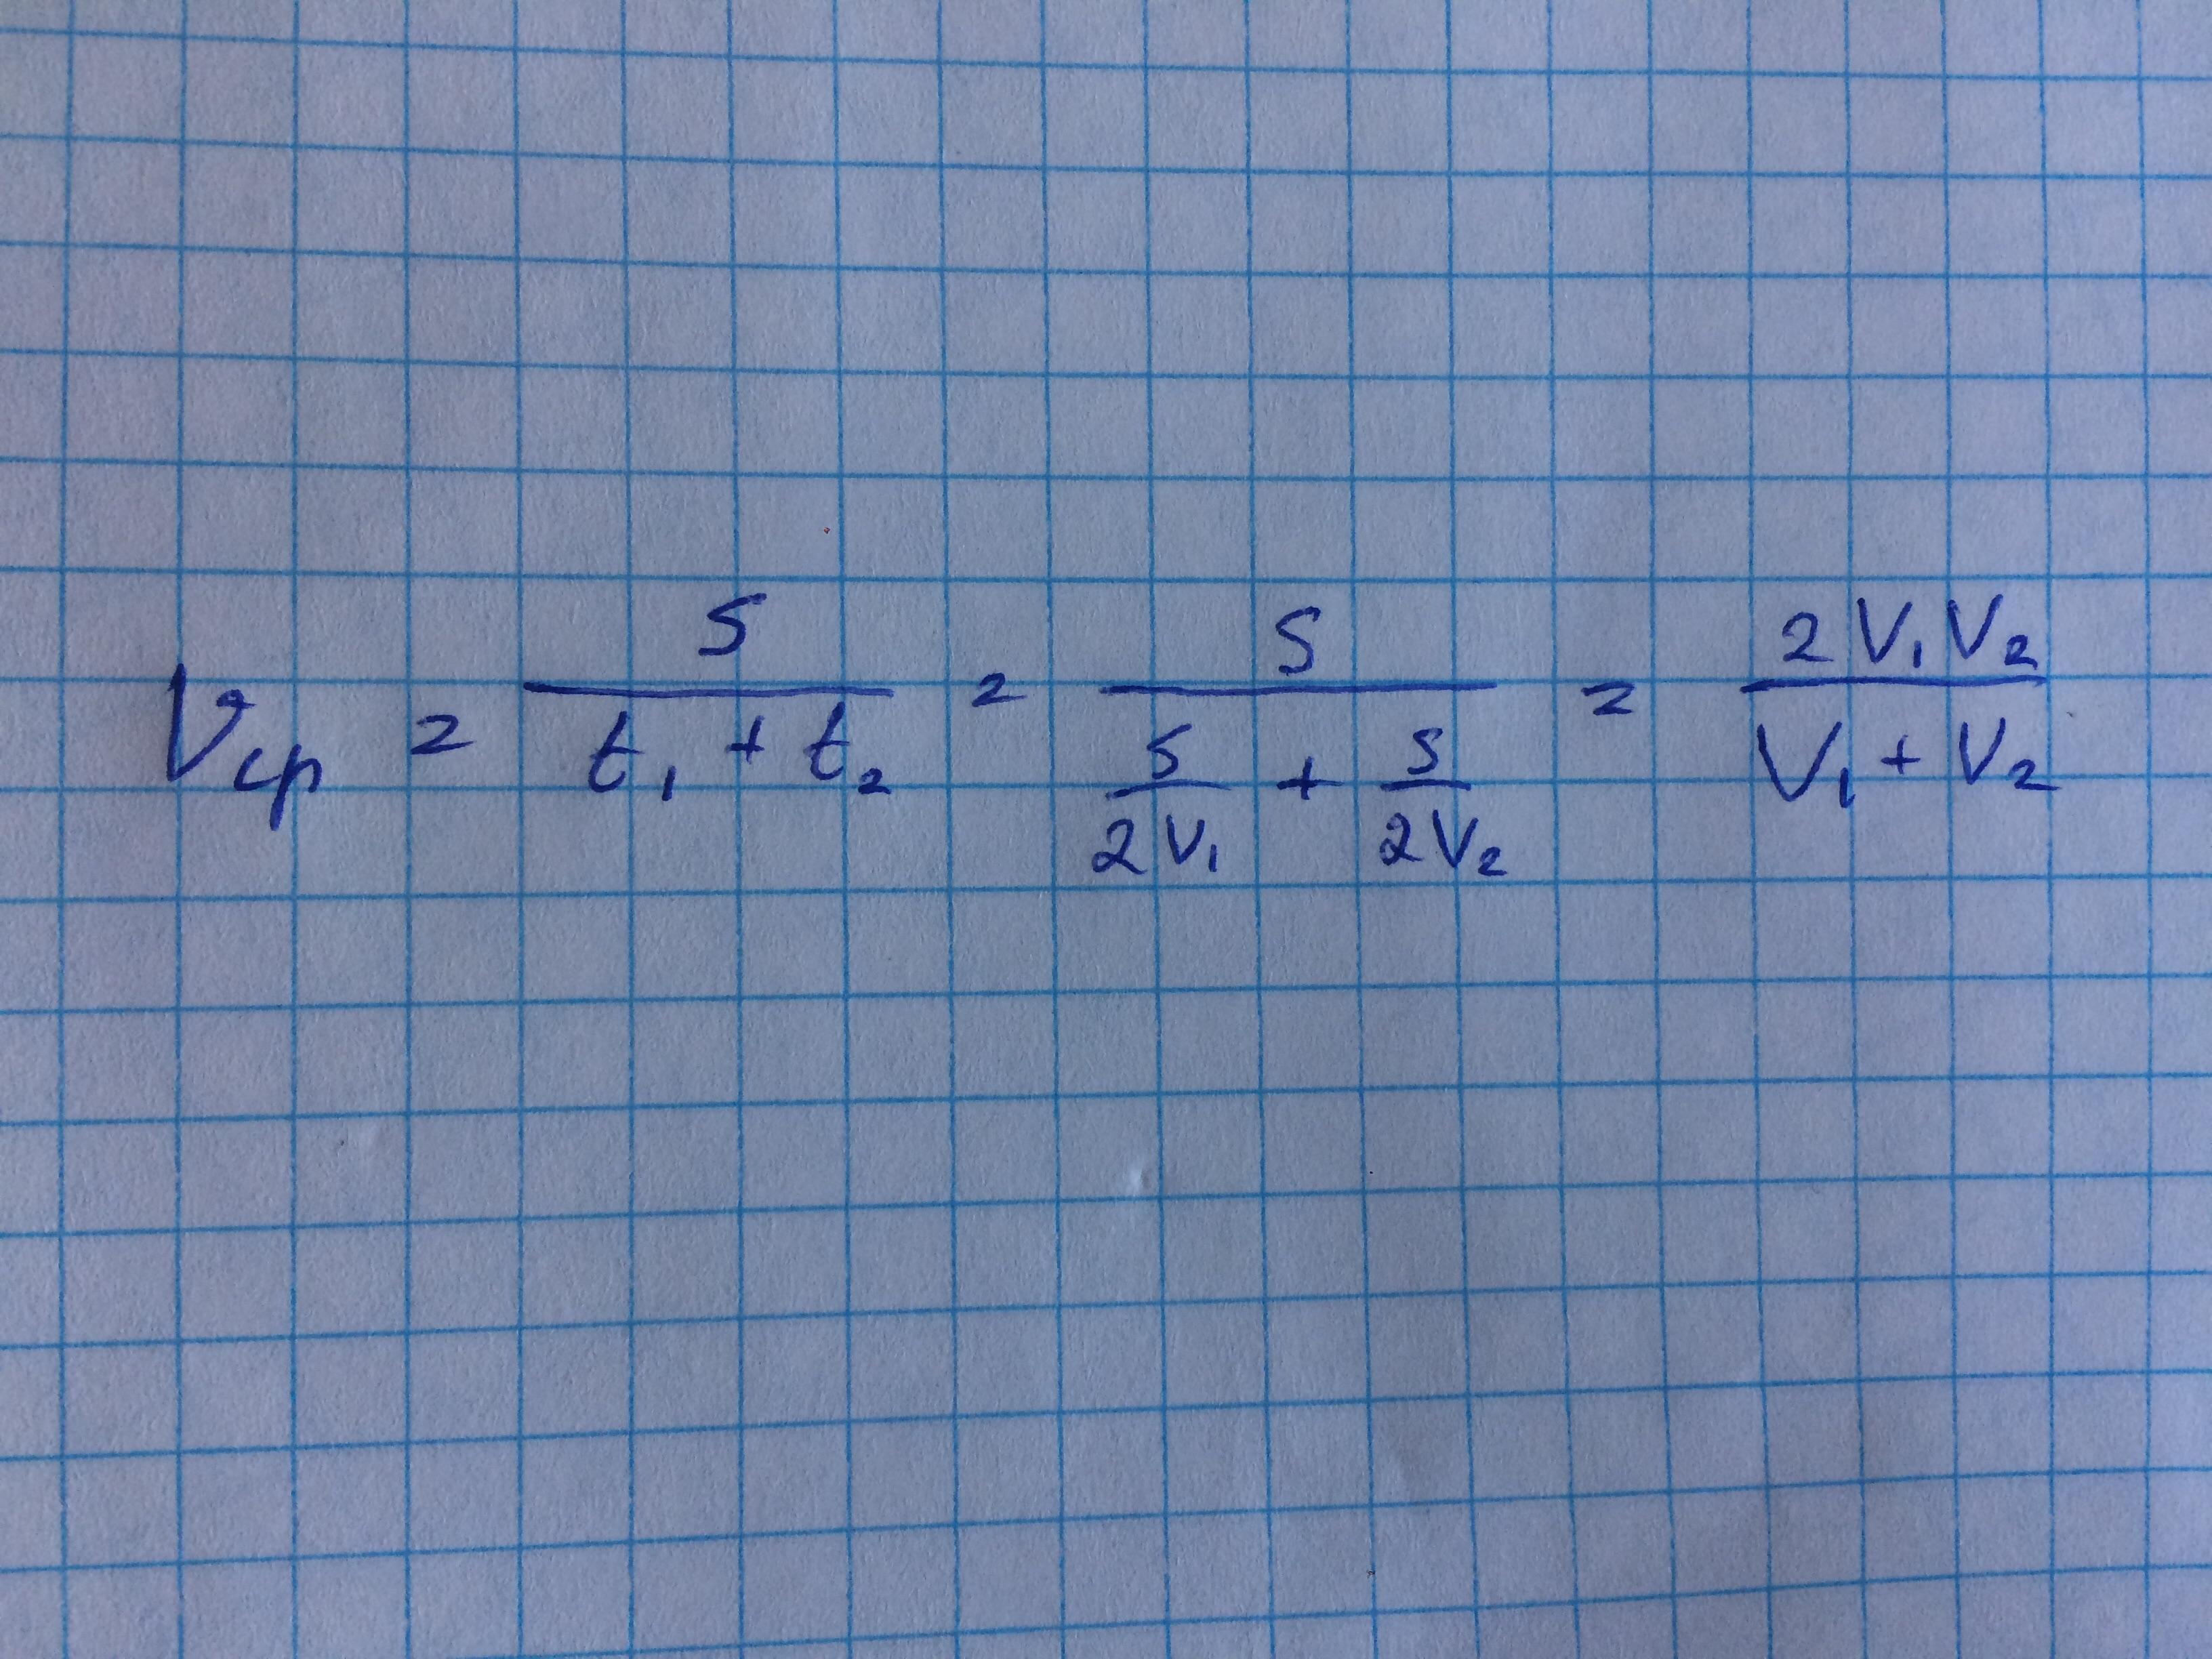 Vср = S / (t₁ + t₂) = S / (S/(2V₁) + S/(2V₂)) = 2V₁V₂ / (V₁ + V₂)